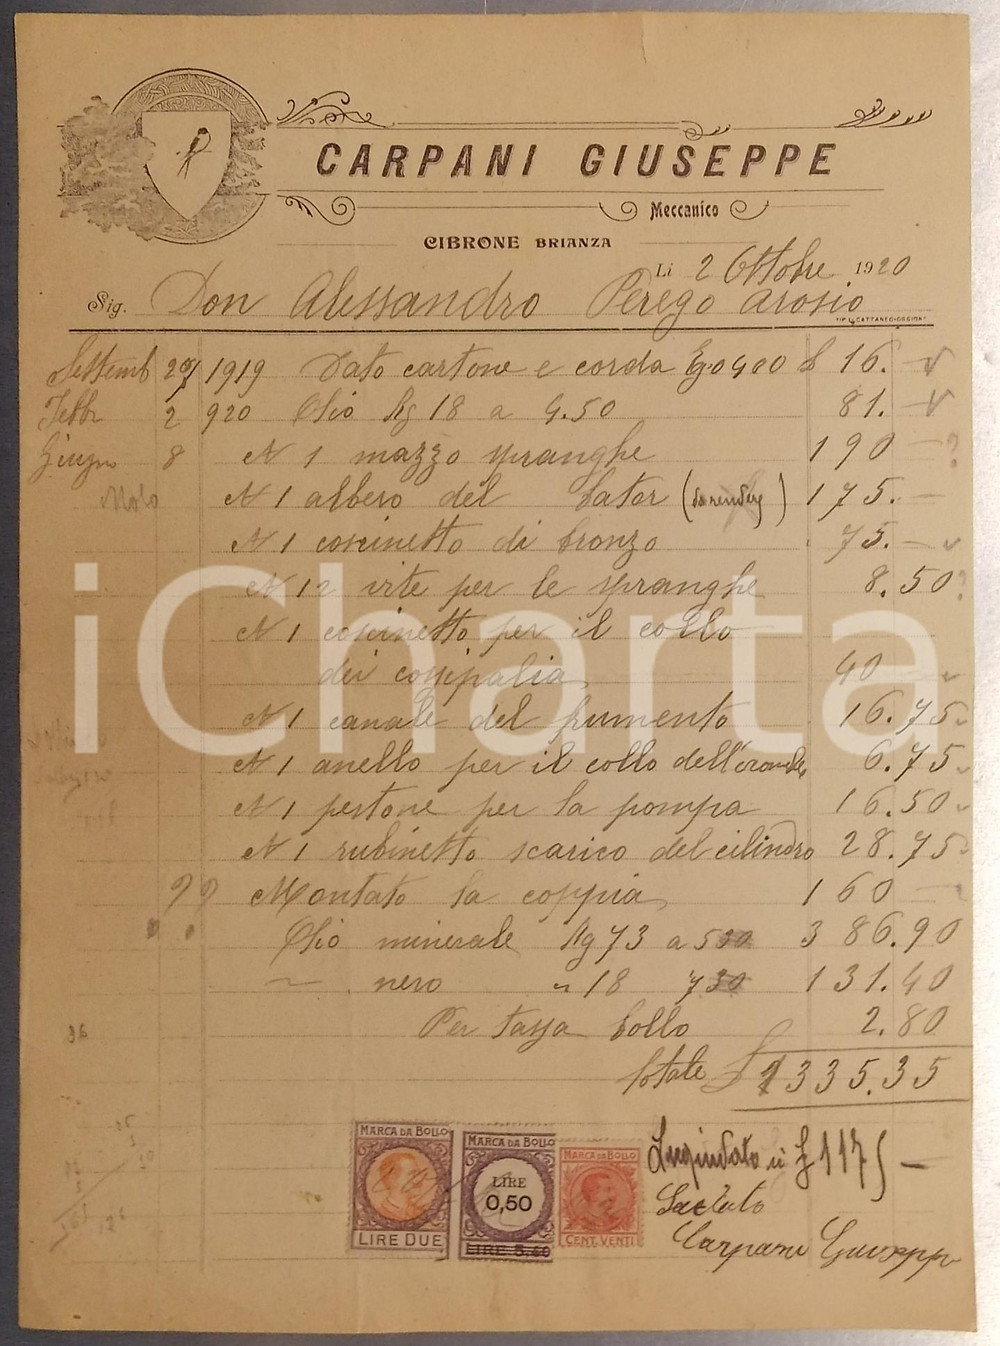 CARPANI GIUSEPPE
Meccanico
CIBRONE BRIANZA
Li 2 Ottobre 1920
Sig. Don Alessandro Perego Arosio
Settemb 29 1919 Dato cartone e corda £ 16. —
Febbr 2 920 Olio Kg 18 a 4.50 81. —
Giugn 8 N 1 mazzo spranghe 190 — ?
N 1 albero del Bator ( ) 175. —
N 1 coscinetto di bronzo 75. —
N 12 vite per le spranghe 8.50 ?
N 1 coscinetto per il collo
dei 40 —
N 1 canale del frumento 16.75
N 1 anello per il collo 6.75
N 1 pestone per la pompa 16.50
N 1 rubinetto scarico del cilindro 28.75
? ? Montato la coppia 160 —
Olio minerale Kg 73 a 530 386.90
~ nero " 18 730 131.40
Per tassa bollo 2.80
Totale £ 1335.35
MARCA DA BOLLO
LIRE DUE
MARCA DA BOLLO
LIRE
0,50
MARCA DA BOLLO
CENT. VENTI
in £ 1175 —
Saldato
Carpani Giuseppe
iCharta